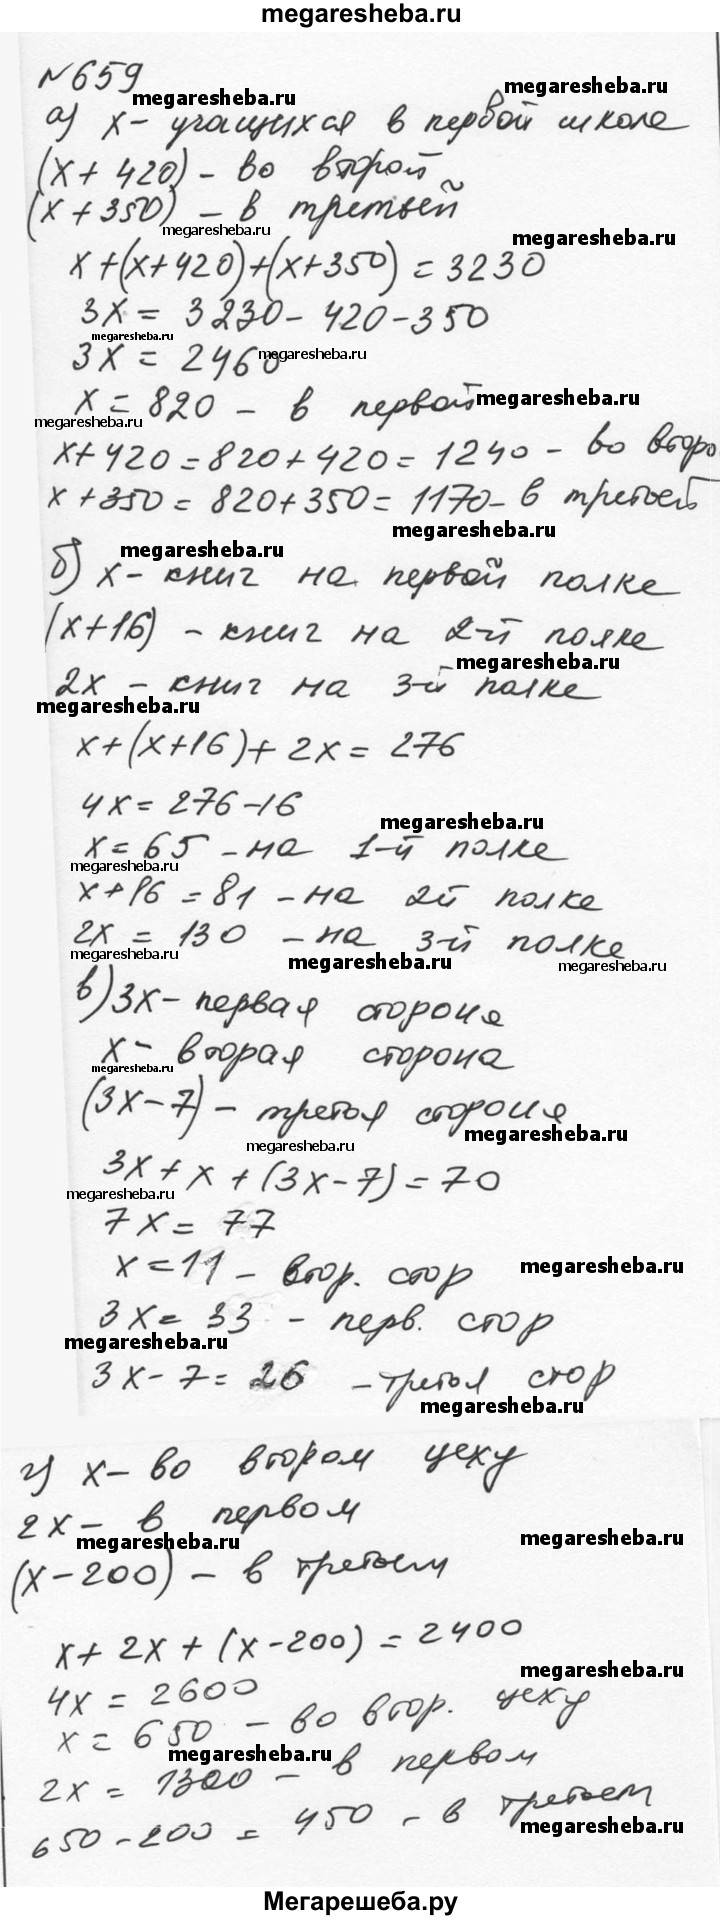 megaresheba.ru
№659
megaresheba.ru
а) х - учащихся в первой школе
(х + 420) - во второй
(х + 350) - в третьей
megaresheba.ru
megaresheba.ru
х+(х+420)+(х+350) = 3230
3х = 3230 - 420 - 350
megaresheba.ru
3х = 2460
megaresheba.ru
х = 820 - в первой
megaresheba.ru
megaresheba.ru
х+420 = 820+420 = 1240 - во второ
х + 350 = 820+350 = 1170 - в третьей
megaresheba.ru
megaresheba.ru
б) х - книг на первой полке
(х+16) - книг на 2-й полке
megaresheba.ru
2х - книг на 3-й полке
megaresheba.ru
х+(х+16)+ 2х = 276
4х = 276-16
megaresheba.ru
х = 65 - на 1-й полке
megaresheba.ru
х+16 = 81 - на 2й полке
2х = 130 - на 3-й полке
megaresheba.ru
megaresheba.ru
megaresheba.ru
в) 3х - первая сторона
х - вторая сторона
megaresheba.ru
(3х - 7) - третья сторона
megaresheba.ru
megaresheba.ru
3х + х + (3х - 7) = 70
megaresheba.ru
7х = 77
х = 11 - втор. стор
megaresheba.ru
3х = 33 - перв. стор
megaresheba.ru
3х - 7 = 26 - третья стор
megaresheba.ru
г) х - во втором цеху
2х - в первом
megaresheba.ru
megaresheba.ru
(х - 200) - в третьем
х + 2х + (х - 200) = 2400
megaresheba.ru
4х = 2600
х = 650 - во втор. цеху
megaresheba.ru
2х = 1300 - в первом
650 - 200 = 450 - в третьем
megaresheba.ru
Мегарешеба.ру